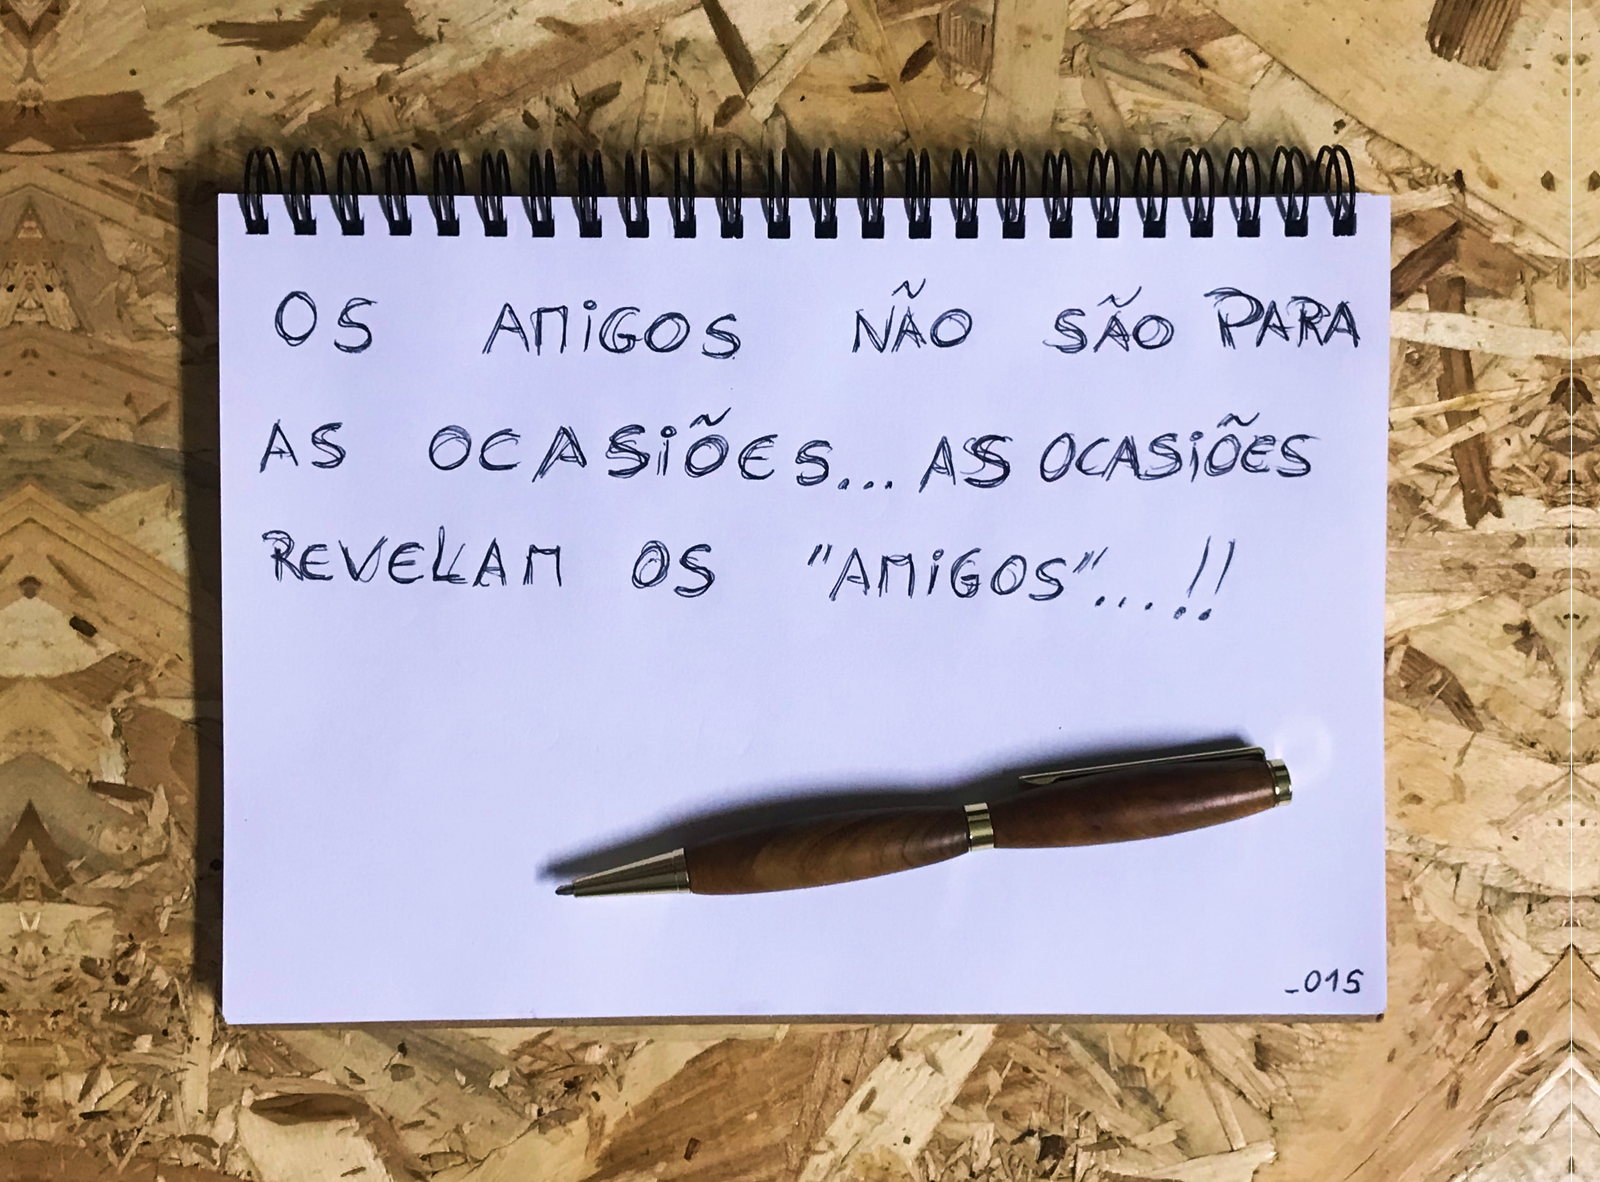 OS AMiGOS NÃO SÃO PARA
AS OCASiÕES... AS OCASiÕES
REVELAM OS "AMiGOS"...!!
_015